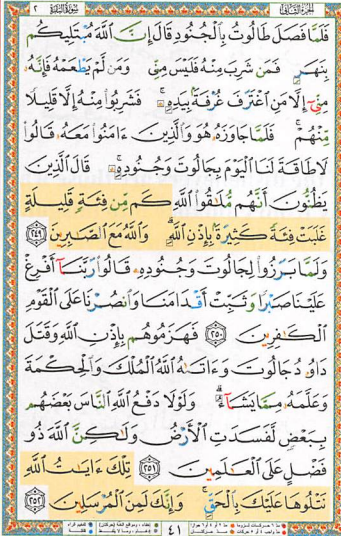 الجزء الثاني سورة البقرة ٢
فَلَمَّا فَصَلَ طَالُوتُ بِالْجُنُودِ قَالَ إِنَّ اللَّهَ مُبْتَلِيكُم
بِنَهَرٍ فَمَن شَرِبَ مِنْهُ فَلَيْسَ مِنِّي وَمَن لَّمْ يَطْعَمْهُ فَإِنَّهُ
مِنِّي إِلَّا مَنِ اغْتَرَفَ غُرْفَةً بِيَدِهِ ۚ فَشَرِبُوا مِنْهُ إِلَّا قَلِيلًا
مِّنْهُمْ ۚ فَلَمَّا جَاوَزَهُ هُوَ وَالَّذِينَ ءَامَنُوا مَعَهُ قَالُوا
لَا طَاقَةَ لَنَا الْيَوْمَ بِجَالُوتَ وَجُنُودِهِ ۚ قَالَ الَّذِينَ
يَظُنُّونَ أَنَّهُم مُّلَٰقُوا اللَّهِ كَم مِّن فِئَةٍ قَلِيلَةٍ
غَلَبَتْ فِئَةً كَثِيرَةً بِإِذْنِ اللَّهِ ۗ وَاللَّهُ مَعَ الصَّٰبِرِينَ ٢٤٩
وَلَمَّا بَرَزُوا لِجَالُوتَ وَجُنُودِهِ قَالُوا رَبَّنَا أَفْرِغْ
عَلَيْنَا صَبْرًا وَثَبِّتْ أَقْدَامَنَا وَانصُرْنَا عَلَى الْقَوْمِ
الْكَٰفِرِينَ ٢٥٠ فَهَزَمُوهُم بِإِذْنِ اللَّهِ وَقَتَلَ
دَاوُدُ جَالُوتَ وَءَاتَىٰهُ اللَّهُ الْمُلْكَ وَالْحِكْمَةَ
وَعَلَّمَهُ مِمَّا يَشَاءُ ۗ وَلَوْلَا دَفْعُ اللَّهِ النَّاسَ بَعْضَهُم
بِبَعْضٍ لَّفَسَدَتِ الْأَرْضُ وَلَٰكِنَّ اللَّهَ ذُو
فَضْلٍ عَلَى الْعَٰلَمِينَ ٢٥١ تِلْكَ ءَايَٰتُ اللَّهِ
نَتْلُوهَا عَلَيْكَ بِالْحَقِّ ۚ وَإِنَّكَ لَمِنَ الْمُرْسَلِينَ ٢٥٢
٤١